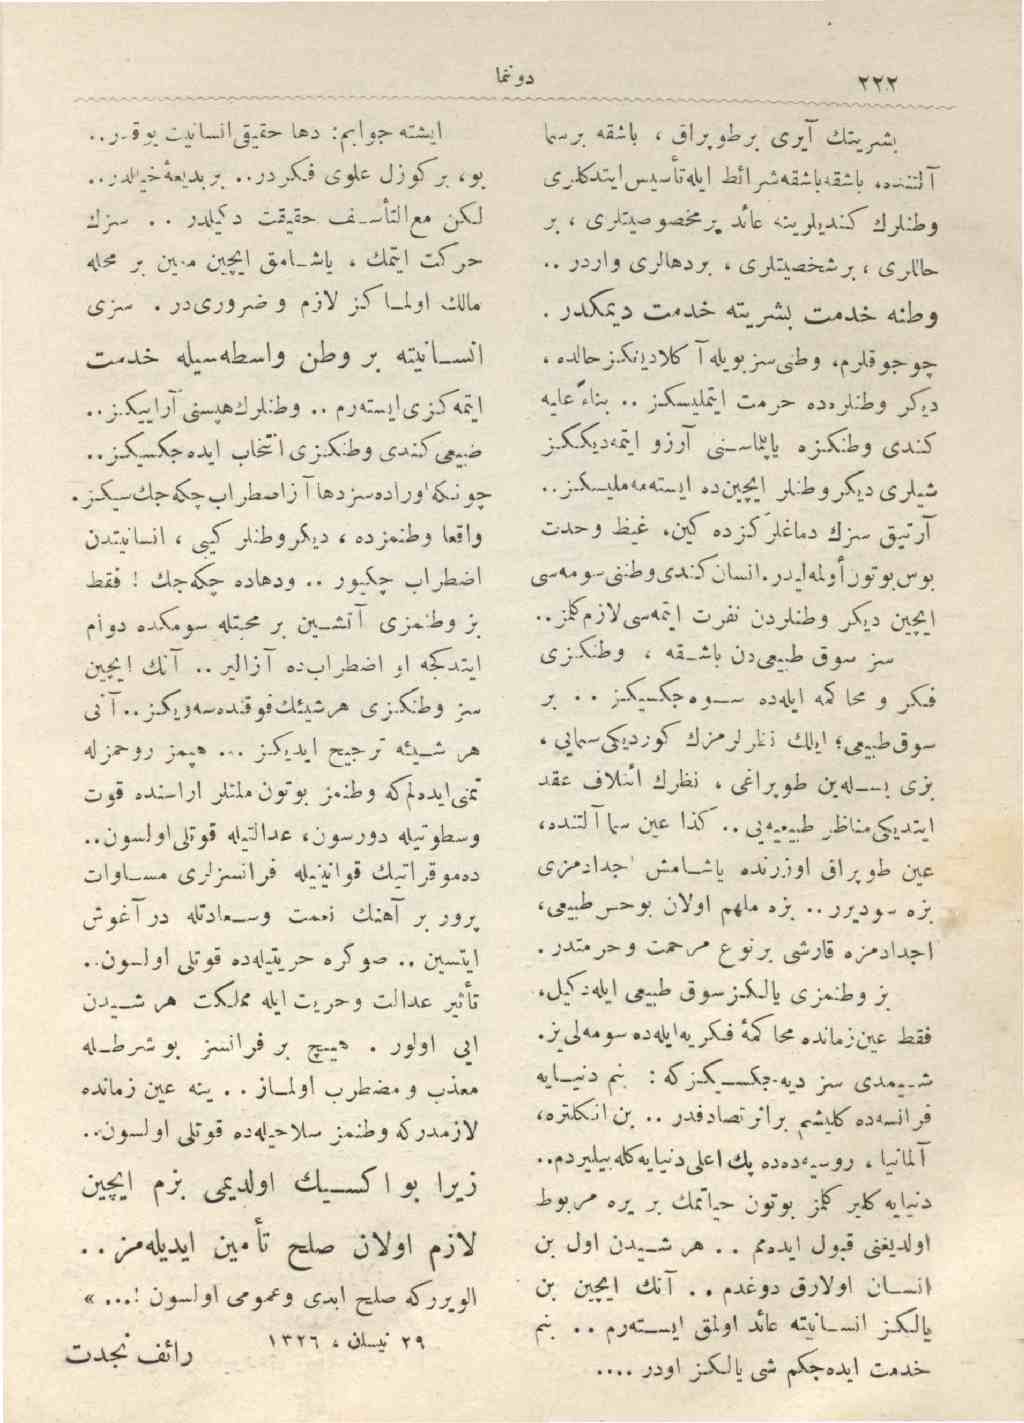 ٢٢٢
دونما
بشریتك آیری برطوپراق ، باشقه برسما
آلتنده، باشقه باشقه شرائط ایله تأسیس ایتدکلری
وطنلرك کندیلرینه عائد بر مخصوصیتلری ، بر
حاللری ، بر شخصیتلری ، بردهالری واردر ..
وطنه خدمت بشریته خدمت دیمکدر .
چوجوقلرم، وطنی سز بویله آ کلادیغکز حالده ،
دیکر وطنلره ده حرمت ایتملیسکز .. بناءً علیه
کندی وطنکزه یاپلماسنی آرزو ایتمه دیککز
شیلری دیکر وطنلر ایچین ده ایسته مه ملیسکز ..
آرتیق سزك دماغلرکزده کین، غیظ وحدت
بوس بوتون أولمه لیدر. انسان کندی وطننی سومه سی
ایچین دیکر وطنلردن نفرت ایتمه سی لازم کلمز ..
سز سوق طبیعی دن باشقه ، وطنکزی
فکر و محاکمه ایله ده سوه جکسیکز .. بر
سوق طبیعی؛ ایلك نظرلرمزك کوردیکی سمایی ،
بزی بسله ین طوپراغی ، نظرك ائتلاف عقد
ایتدیکی مناظر طبیعیه یی .. کذا عین سما آلتنده،
عین طوپراق اوزرنده یاشامش اجدادمزی
بزه سودیرر .. بزه ملهم اولان بوحس طبیعی،
اجدادمزه قارشی برنوع مرحمت وحرمتدر .
بز وطنمزی یالکز سوق طبیعی ایله دکیل،
فقط عین زمانده محاکمهٔ فکریه ایله ده سومه لی یز.
شیمدی سز دیه جکسیکز که : بنم دنیایه
فرانسه ده کلیشم براثر تصادفدر .. بن انکلتره،
آلمانیا ، روسیه ده ده پك اعلی دنیایه کله بیلیردم ..
دنیایه کلیر کلمز بوتون حیاتمك بر یره مربوط
اولدیغنی قبول ایده مم .. هر شیدن اول بن
انسان اولارق دوغدم .. آنك ایچین بن
یالکز انسانیته عائد اولمق ایسته رم .. بنم
خدمت ایده جکم شی یالکز اودر ....
ایشته جوابم: دها حقیقی انسانیت یوقدر ..
بو، بر کوزل علوی فکردر .. بر بدیعهٔ خیالدر ..
لکن مع التأسف حقیقت دکیلدر .. سزك
حرکت ایتمك ، یاشامق ایچین معین بر محله
مالك اولماکز لازم و ضروری در . سزی
انسانیته بر وطن واسطه سیله خدمت
ایتمه کزی ایسته رم .. وطنلرك هپسنی آراییکز ..
طبیعی کندی وطنکزی انتخاب ایده جکسیکز ..
چونکه اوراده سز دها آز اضطراب چکه جك سیکز .
واقعا وطنمزده ، دیکر وطنلر کیبی ، انسانیتدن
اضطراب چکیور .. ودهاده چکه جك ! فقط
بز وطنمزی آتشین بر محبتله سومکده دوام
ایتدکجه او اضطراب ده آزالیر .. آنك ایچین
سز وطنکزی هرشیئك فوقنده سه ویکز .. آنی
هر شیئه ترجیح ایدیکز ... هپمز روحمزله
تمنی ایده لم که وطنمز بوتون ملتلر اراسنده قوت
وسطوتیله دورسون، عدالتیله قوتلی اولسون ..
ده موقراتیك قوانینیله فرانسزلری مساوات
پرور بر آهنك نعمت وسعادتله درآغوش
ایتسین .. صوکره حریتیله ده قوتلی اولسون ..
تأثیر عدالت وحریت ایله مملکت هر شیدن
ایی اولور . هیچ بر فرانسز بو شرطله
معذب و مضطرب اولماز .. ینه عین زمانده
لازمدرکه وطنمز سلاحیله ده قوتلی اولسون ..
زیرا بو اکسیك اولدیمی بزم ایچین
لازم اولان صلح تأمین ایدیله مز ..
الویررکه صلح ابدی وعمومی اولسون !... »
٢٩ نیسان ، ١٣٢٦
رائف نجدت